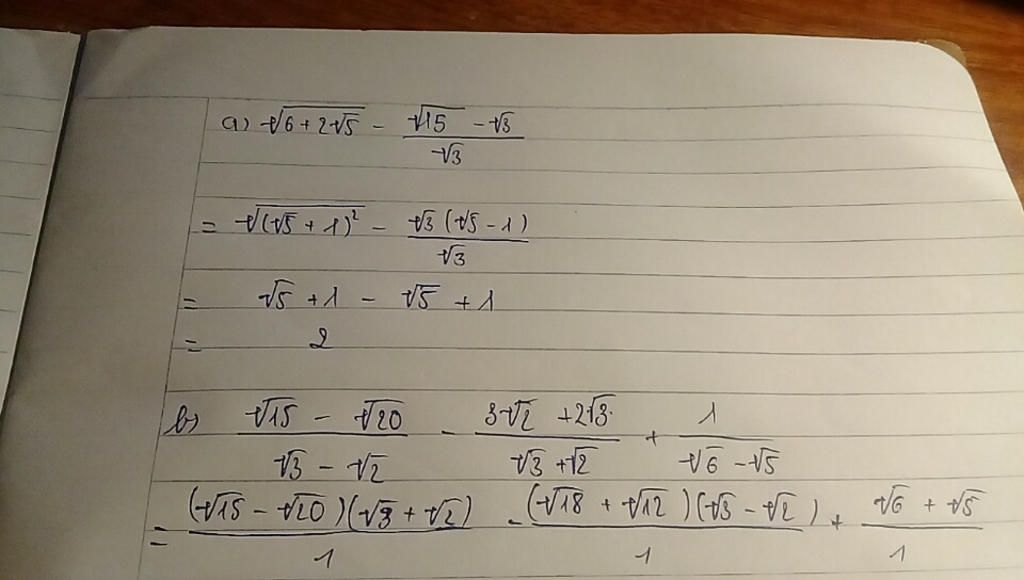 a) √(6 + 2√5) - (√15 - √3)/√3
= √((√5 + 1)²) - √3(√5 - 1)/√3
= √5 + 1 - √5 + 1
= 2
b) (√15 - √20)/(√3 - √2) - (3√2 + 2√3)/(√3 + √2) + 1/(√6 - √5)
= (√15 - √20)(√3 + √2)/1 - (√18 + √12)(√3 - √2)/1 + (√6 + √5)/1